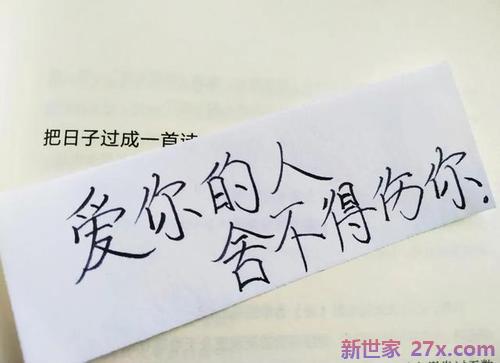 把日子过成一首诗
爱你的人
舍不得伤你.
新世家 27x.com